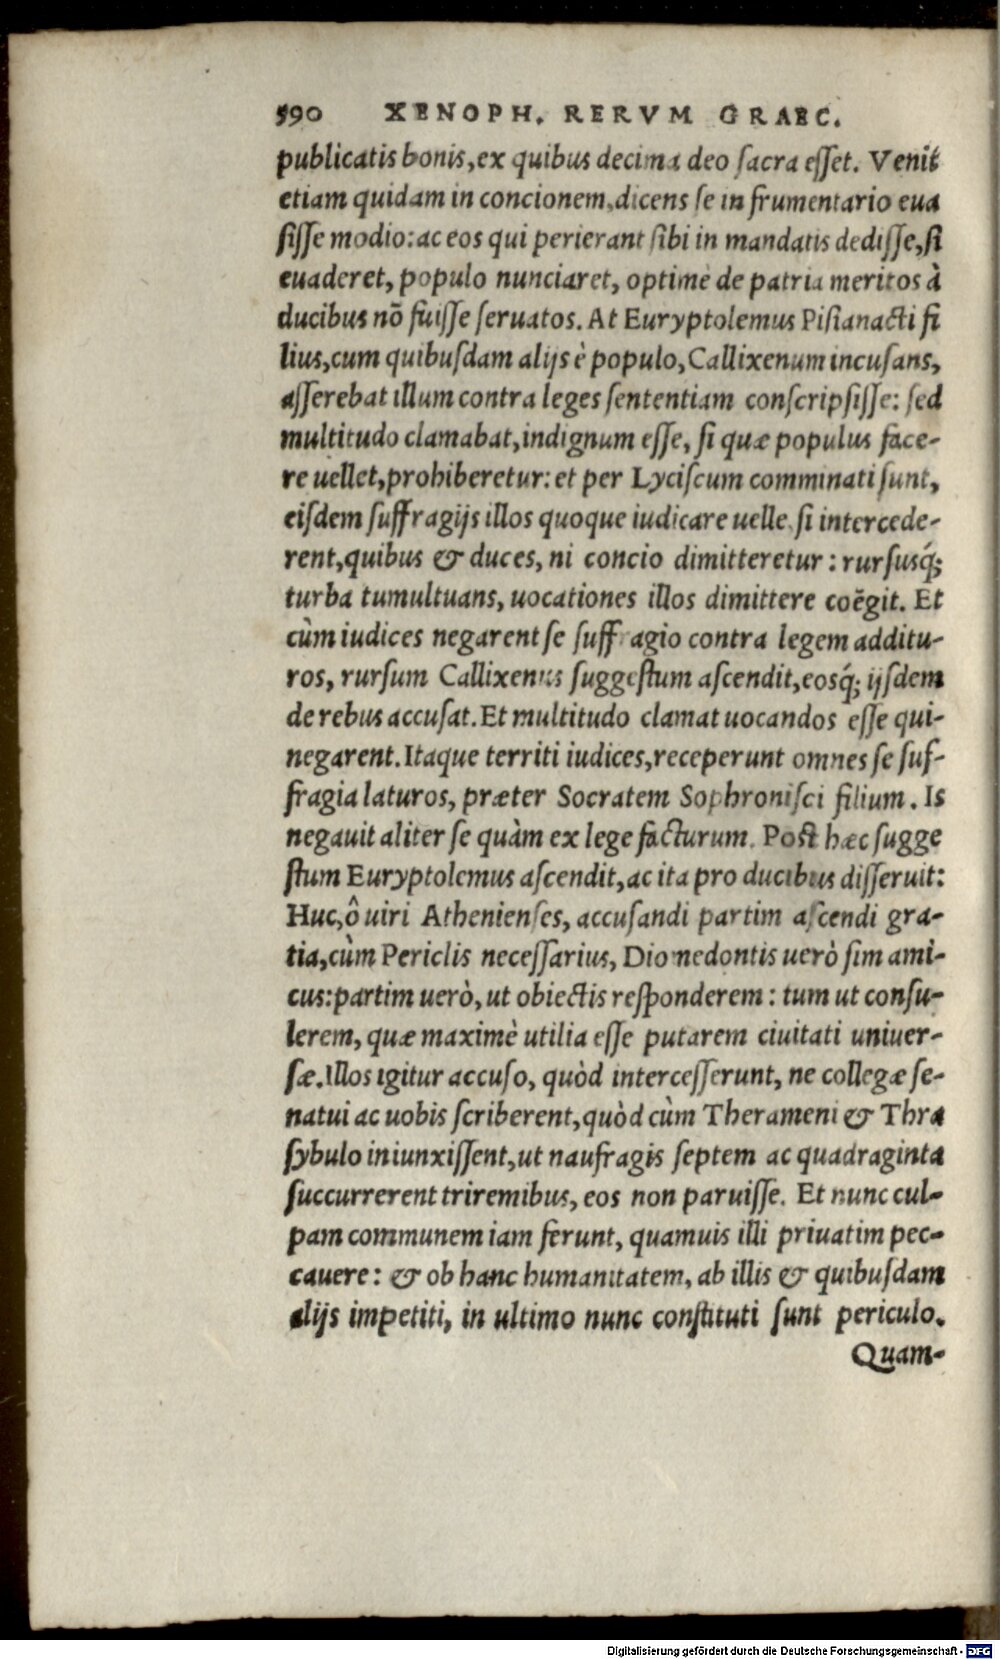 590 XENOPH. RERVM GRAEC.
publicatis bonis, ex quibus decima deo sacra esset. Venit
etiam quidam in concionem, dicens se in frumentario eua
sisse modio: ac eos qui perierant sibi in mandatis dedisse, si
euaderet, populo nunciaret, optimè de patria meritos à
ducibus nō fuisse seruatos. At Euryptolemus Pisianacti fi
lius, cum quibusdam alijs è populo, Callixenum incusans,
asserebat illum contra leges sententiam conscripsisse: sed
multitudo clamabat, indignum esse, si quæ populus face-
re uellet, prohiberetur: et per Lyciscum comminati sunt,
eisdem suffragijs illos quoque iudicare uelle, si intercede-
rent, quibus & duces, ni concio dimitteretur: rursusq́;
turba tumultuans, uocationes illos dimittere coëgit. Et
cùm iudices negarent se suffragio contra legem additu-
ros, rursum Callixenus suggestum ascendit, eosq́; ijsdem
de rebus accusat. Et multitudo clamat uocandos esse qui-
negarent. Itaque territi iudices, receperunt omnes se suf-
fragia laturos, præter Socratem Sophronisci filium. Is
negauit aliter se quàm ex lege facturum. Post hæc sugge
stum Euryptolemus ascendit, ac ita pro ducibus disseruit:
Huc, ô uiri Athenienses, accusandi partim ascendi gra-
tia, cùm Periclis necessarius, Diomedontis uerò sim ami-
cus: partim uerò, ut obiectis responderem: tum ut consu-
lerem, quæ maximè utilia esse putarem ciuitati uniuer-
sæ. Illos igitur accuso, quòd intercesserunt, ne collegæ se-
natui ac uobis scriberent, quòd cùm Therameni & Thra
sybulo iniunxissent, ut naufragis septem ac quadraginta
succurrerent triremibus, eos non paruisse. Et nunc cul-
pam communem iam ferunt, quamuis illi priuatim pec-
cauere: & ob hanc humanitatem, ab illis & quibusdam
alijs impetiti, in ultimo nunc constituti sunt periculo.
Quam-
Digitalisierung gefördert durch die Deutsche Forschungsgemeinschaft - DFG